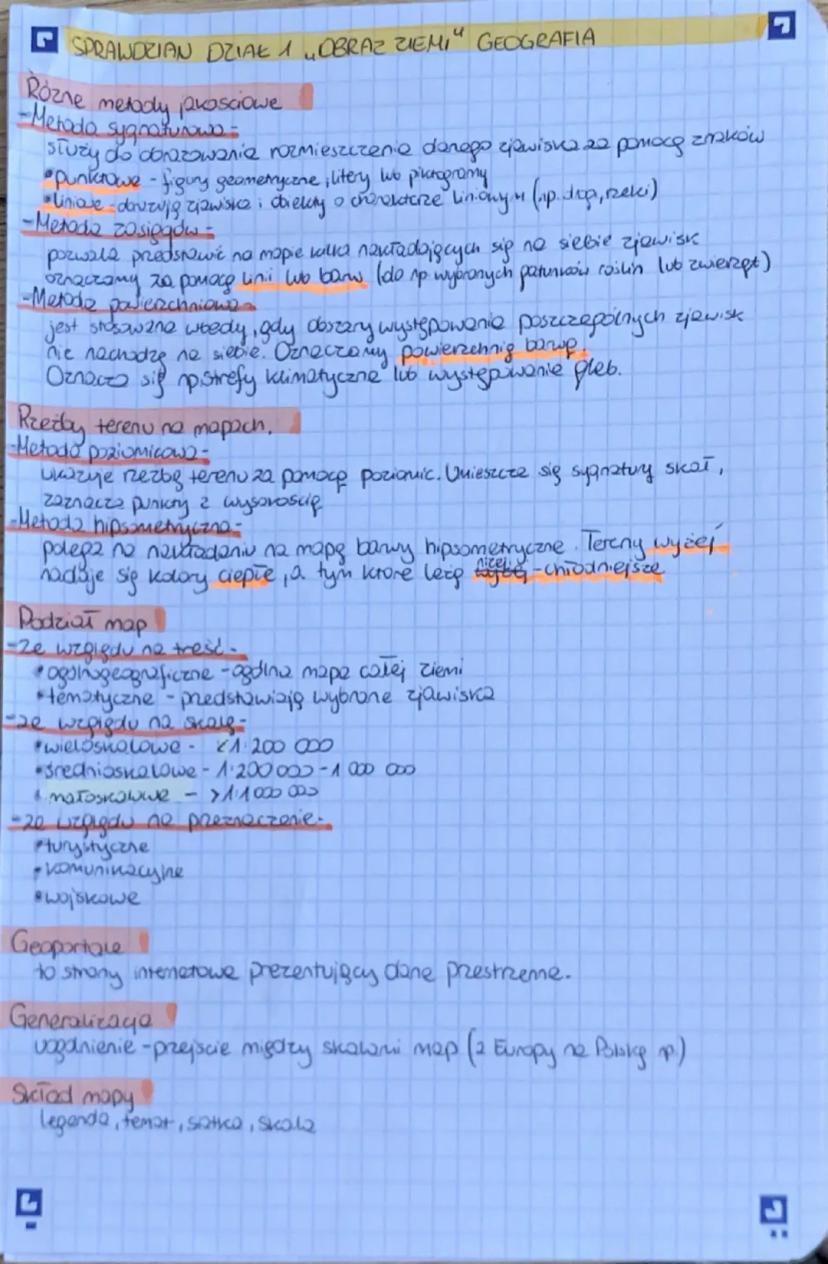 SPRAWDZIAN DZIAŁ 1 „OBRAZ ZIEMI" GEOGRAFIA
Różne metody jakościowe
-Metoda sygnaturowa-
służy do obrazowania rozmieszczenia danego zjawiska za pomocą znaków
•punktowe - figury geometryczne, litery lub piktogramy
•liniowe - zjawiska i obiekty o charakterze liniowym (np. dróg, rzeki)
-Metoda zasięgów-
pozwala przedstawić na mapie kilka nakładających się na siebie zjawisk
oznaczamy za pomocą linii lub barw (do np. wybranych gatunków roślin lub zwierząt)
-Metoda powierzchniowa-
jest stosowana wtedy, gdy obszary występowania poszczególnych zjawisk
nie nachodzą na siebie. Oznaczamy powierzchnię barwą.
Oznacza się np. strefy klimatyczne lub występowanie gleb.
Rzeźby terenu na mapach.
-Metoda poziomicowa-
ukazuje rzeźbę terenu za pomocą poziomic. Umieszcza się sygnatury skał,
zaznacza punkty z wysokością
-Metoda hipsometryczna-
polega na nakładaniu na mapę barwy hipsometryczne. Tereny wyżej
nadaje się kolory ciepłe, a tym które leżą niżej -chłodniejsze
Podział map
-ze względu na treść-
•ogólnogeograficzne - ogólna mapa całej ziemi
•tematyczne - przedstawiają wybrane zjawiska
-ze względu na skalę-
•wielkoskalowe - <1:200 000
•średnioskalowe - 1:200 000 - 1 000 000
•małoskalowe - >1:1 000 000
-ze względu na przeznaczenie-
•turystyczne
•komunikacyjne
•wojskowe
Geoportale
to strony internetowe prezentujący dane przestrzenne.
Generalizacja
uogólnienie - przejście między skalami map (z Europy na Polskę np.)
Skład mapy
legenda, temat, siatka, skala